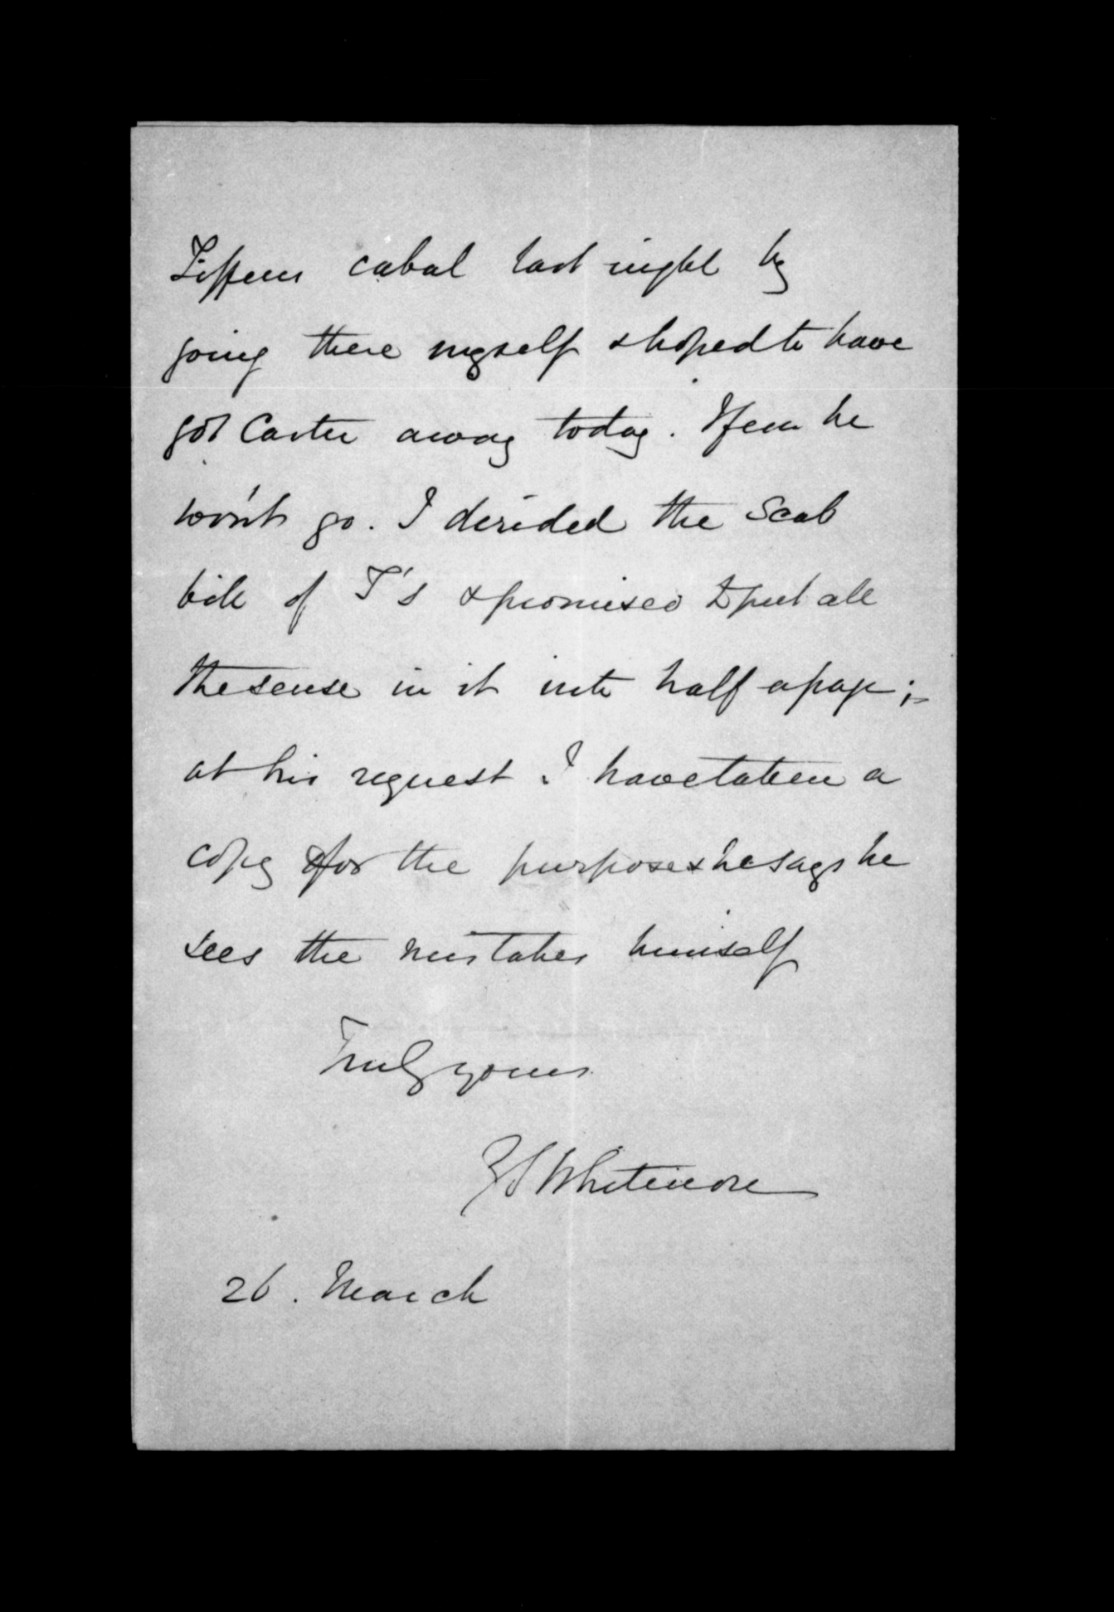 Tiffens cabal last night by
going there myself & hoped to have
got Carter away today. I fear he
won't go. I derided the Scab
bill of T's & promised to put all
the sense in it into half a page;
at his request I have taken a
copy for the purpose & he says he
sees the mistakes himself
Truly yours
G S Whitmore
26. March